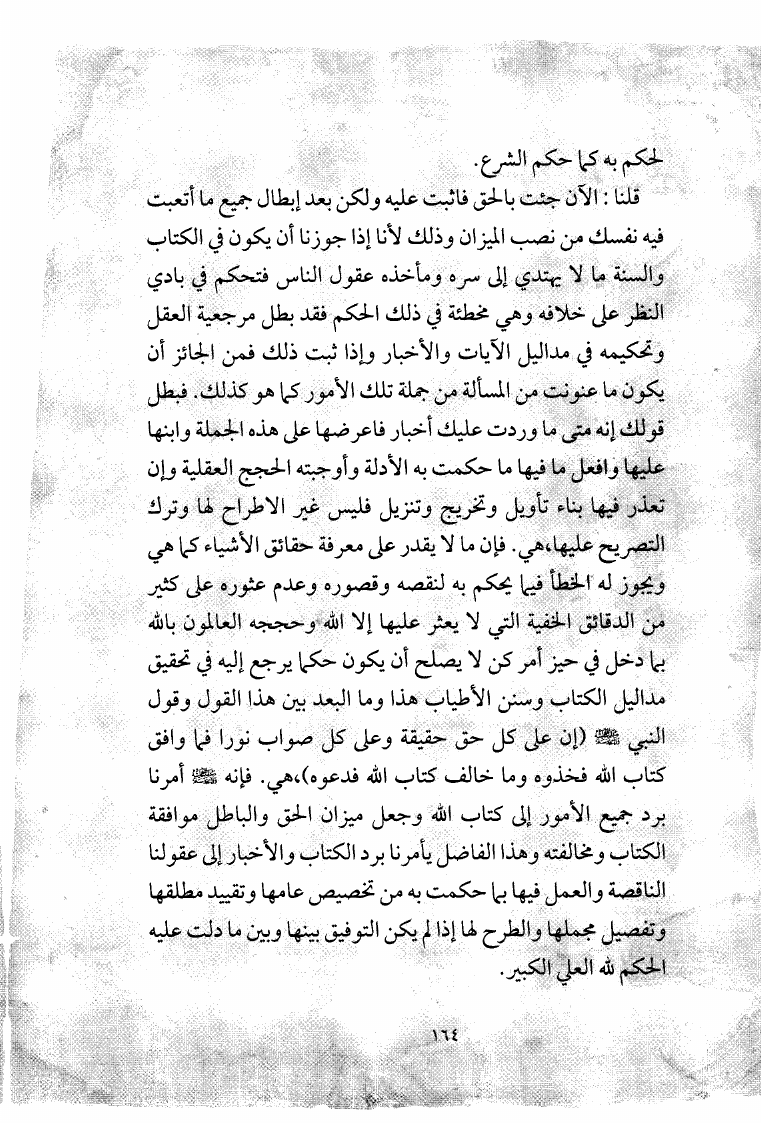 لحكم به كما حكم الشرع.
قلنا : الآن جئت بالحق فاثبت عليه ولكن بعد إبطال جميع ما أتعبت
فيه نفسك من نصب الميزان وذلك لأنا إذا جوزنا أن يكون في الكتاب
والسنة ما لا يهتدي إلى سره ومأخذه عقول الناس فتحكم في بادي
النظر على خلافه وهي مخطئة في ذلك الحكم فقد بطل مرجعية العقل
وتحكيمه في مداليل الآيات والأخبار وإذا ثبت ذلك فمن الجائز أن
يكون ما عنونت من المسألة من جملة تلك الأمور كما هو كذلك. فبطل
قولك إنه متى ما وردت عليك أخبار فاعرضها على هذه الجملة وابنها
عليها وافعل ما فيها ما حكمت به الأدلة وأوجبته الحجج العقلية وإن
تعذر فيها بناء تأويل وتخريج وتنزيل فليس غير الاطراح لها وترك
التصريح عليها،هي. فإن ما لا يقدر على معرفة حقائق الأشياء كما هي
ويجوز له الخطأ فيما يحكم به لنقصه وقصوره وعدم عثوره على كثير
من الدقائق الخفية التي لا يعثر عليها إلا الله وحججه العالمون بالله
بما دخل في حيز أمر كن لا يصلح أن يكون حكما يرجع إليه في تحقيق
مداليل الكتاب وسنن الأطياب هذا وما البعد بين هذا القول وقول
النبي ﷺ (إن على كل حق حقيقة وعلى كل صواب نورا فما وافق
كتاب الله فخذوه وما خالف كتاب الله فدعوه)،هي. فإنه ﷺ أمرنا
برد جميع الأمور إلى كتاب الله وجعل ميزان الحق والباطل موافقة
الكتاب ومخالفته وهذا الفاضل يأمرنا برد الكتاب والأخبار إلى عقولنا
الناقصة والعمل فيها بما حكمت به من تخصيص عامها وتقييد مطلقها
وتفصيل مجملها والطرح لها إذا لم يكن التوفيق بينها وبين ما دلت عليه
الحكم لله العلي الكبير.
١٦٤